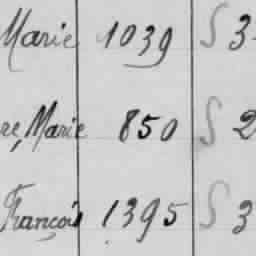 Marie 1039 S 3
re, Marie 850 S 2
François 1395 S 3